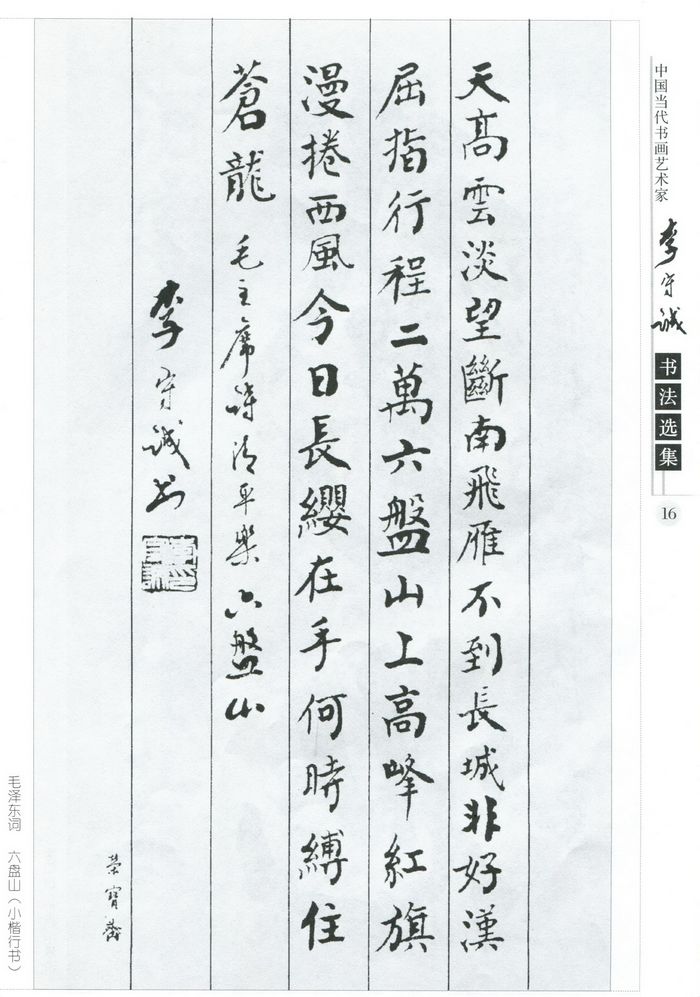 中国当代书画艺术家
李守诚
书法选集
16
天高雲淡望斷南飛雁不到長城非好漢
屈指行程二萬六盤山上高峰紅旗
漫捲西風今日長纓在手何時縛住
蒼龍 毛主席詩清平樂六盤山
李守诚书
荣宝斋
毛泽东词 六盘山（小楷行书）